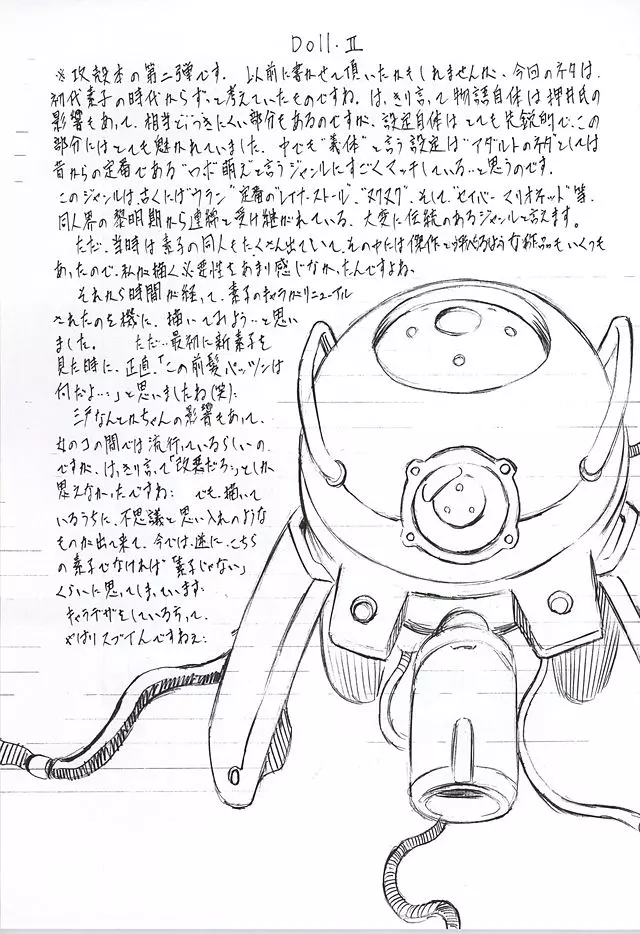 Doll.Ⅱ
※攻殻本の第二弾です。以前に書かせて頂いたかもしれませんが、今回のネタは、
初代素子の時代からずっと考えていたものですね。はっきり言って物語自体は押井氏の
影響もあって、相当とっつきにくい部分もあるのですが、設定自体はとても先鋭的で、この
部分にはとても魅かれていました。中でも"義体"と言う設定は"アダルトのネタ"としては
昔からの定番である"ロボ萌え"と言うジャンルにすごくマッチしている…と思うのです。
このジャンルは、古くには"ウラン"定番の"レイナ・ストール"、"ヌクヌク"、そして、"セイバーマリオネット"等、
同人界の黎明期から連綿と受け継がれている、大変に伝統のあるジャンルと言えます。
ただ、当時は素子の同人もたくさん出ていて、その中には傑作と呼べるような作品もいくつも
あったので、私が描く必要性をあまり感じなかったんですよね。
それから時間が経って、素子のキャラがリニューアル
されたのを機に、描いてみよう…と思い
ました。 ただ…最初に新素子を
見た時に、正直、「この前髪パッツンは
何だよ…」と思いましたね(笑)…
三戸なんとかちゃんの影響もあって、
女のコの間では流行っているらしいの
ですが、はっきり言って「改悪だろ…」としか
思えなかったですね… でも、描いて
いるうちに、不思議と思い入れのような
ものが出て来て、今では、逆に、こちら
の素子でなければ「素子じゃない」
くらいに思ってしまっています…
キャラデザをしている方って、
やはりスゴイんですねぇ…